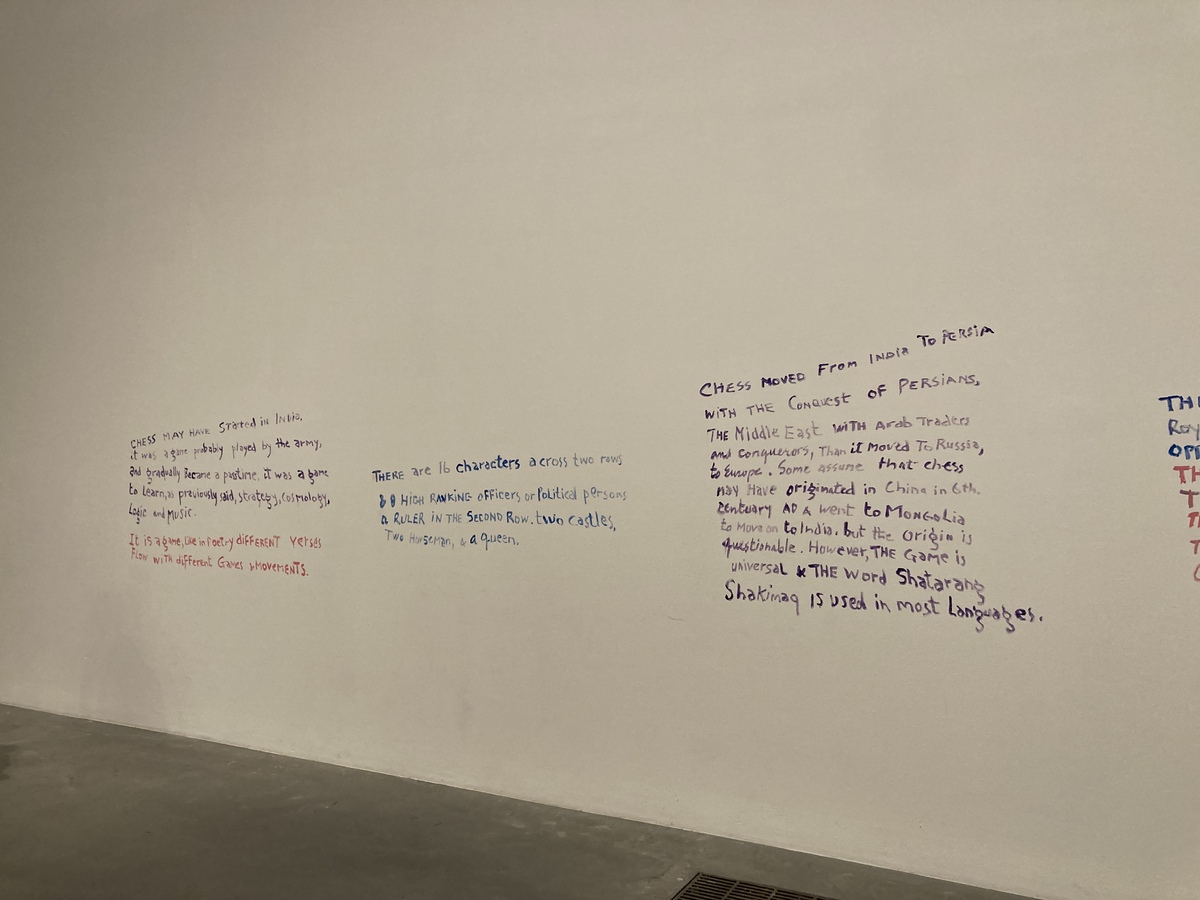 CHESS MAY HAVE Started in India.
it was a game probably played by the army,
and gradually Became a pastime, it was a game
to Learn, as previously said, strategy, cosmology,
Logic and Music.
It is a game, like in Poetry DIFFERENT Verses
Flow WITH different Games & MOVEMENTS.
THERE are 16 characters across two rows
8 HIGH RANKING OFFICERS or Political persons
a RULER IN THE SECOND ROW. two castles,
Two Horseman, & a queen.
CHESS MOVED From INDIA To PERSIA
WITH THE Conquest OF PERSIANS,
THE Middle East WITH Arab Traders
and conquerors, Than it Moved To Russia,
to Europe. Some assume that chess
may Have originated in China in 6th.
centuary AD & went to MONGOLia
to Move on to India, but the origin is
questionable. However, THE Game is
universal & THE Word Shatarang
Shakimaq IS used in most Languages.
TH
Roy
OPP
TH
T